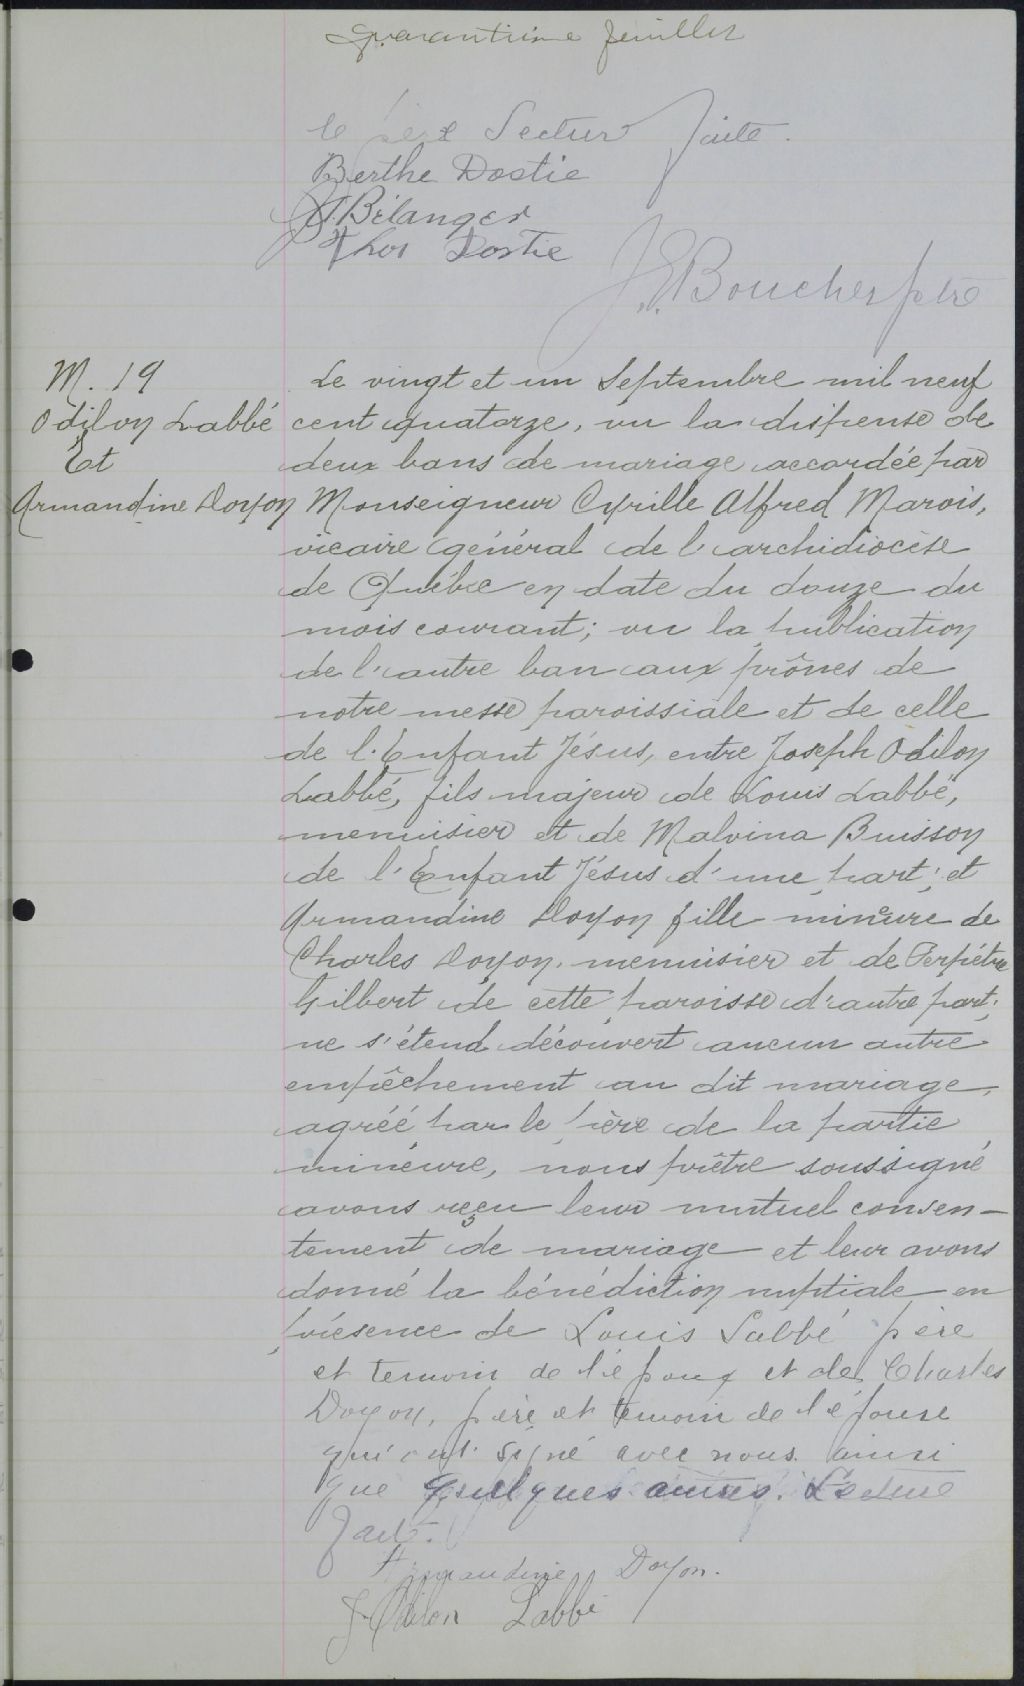 Quarantième feuillet
le père Lecture faite.
Berthe Dostie
J. Bélanger
Thos Dostie
J. E. Boucher ptre
M. 19
Odilon Labbé
Et
Armandine Doyon
Le vingt et un Septembre mil neuf
cent quatorze, vu la dispense de
deux bans de mariage accordée par
Monseigneur Cyrille Alfred Marois,
vicaire général de l'archidiocèse
de Québec en date du douze du
mois courant; vu la publication
de l'autre ban aux prônes de
notre messe paroissiale et de celle
de l'Enfant Jésus, entre Joseph Odilon
Labbé, fils majeur de Louis Labbé,
menuisier et de Malvina Buisson
de l'Enfant Jésus d'une part; et
Armandine Doyon fille mineure de
Charles Doyon, menuisier et de Perpétue
Gilbert de cette paroisse d'autre part;
ne s'étend découvert aucun autre
empêchement au dit mariage,
agréé par le père de la partie
mineure, nous prêtre soussigné
avons reçu leur mutuel consen-
tement de mariage et leur avons
donné la bénédiction nuptiale en
présence de Louis Labbé père
et temoin de l'époux et de Charles
Doyon, père et temoin de l'épouse
qui ont signé avec nous ainsi
que quelques autres. Lecture
faite.
Armandine Doyon.
J. Odilon Labbé